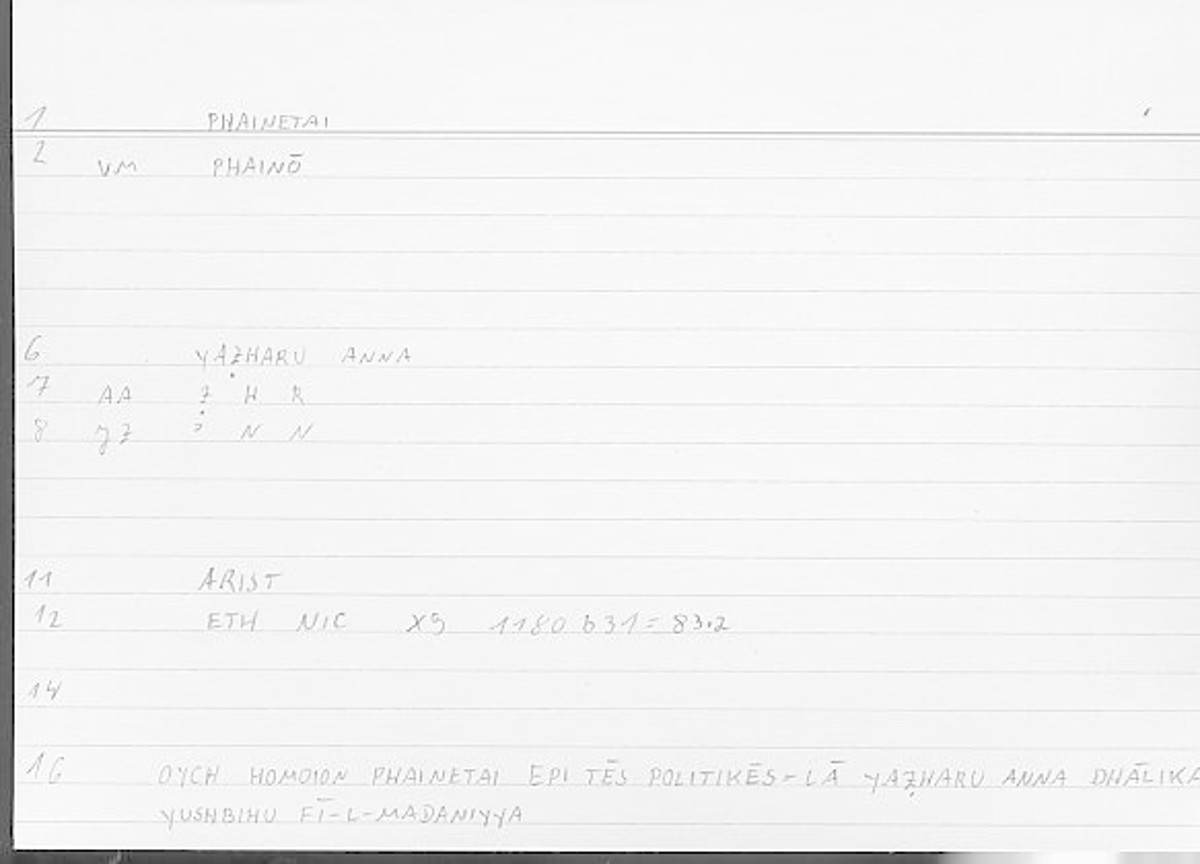 1 PHAINETAI
2 VM PHAINŌ
6 YAẒHARU ANNA
7 AA Ẓ H R
8 ʾ N N
11 ARIST
12 ETH NIC X9 1180 b31 = 83.2
14
16 OYCH HOMOION PHAINETAI EPI TĒS POLITIKĒS = LĀ YAẒHARU ANNA DHĀLIKA
YUSHBIHU FĪ-L-MADANIYYA